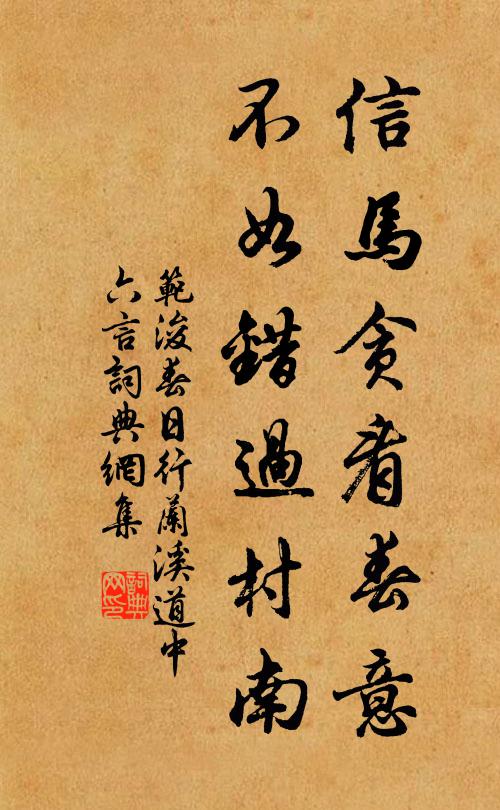 信馬貪看春意
不如錯過村南
範浚春日行蘭溪道中
六言詞典網集
詞典
网印